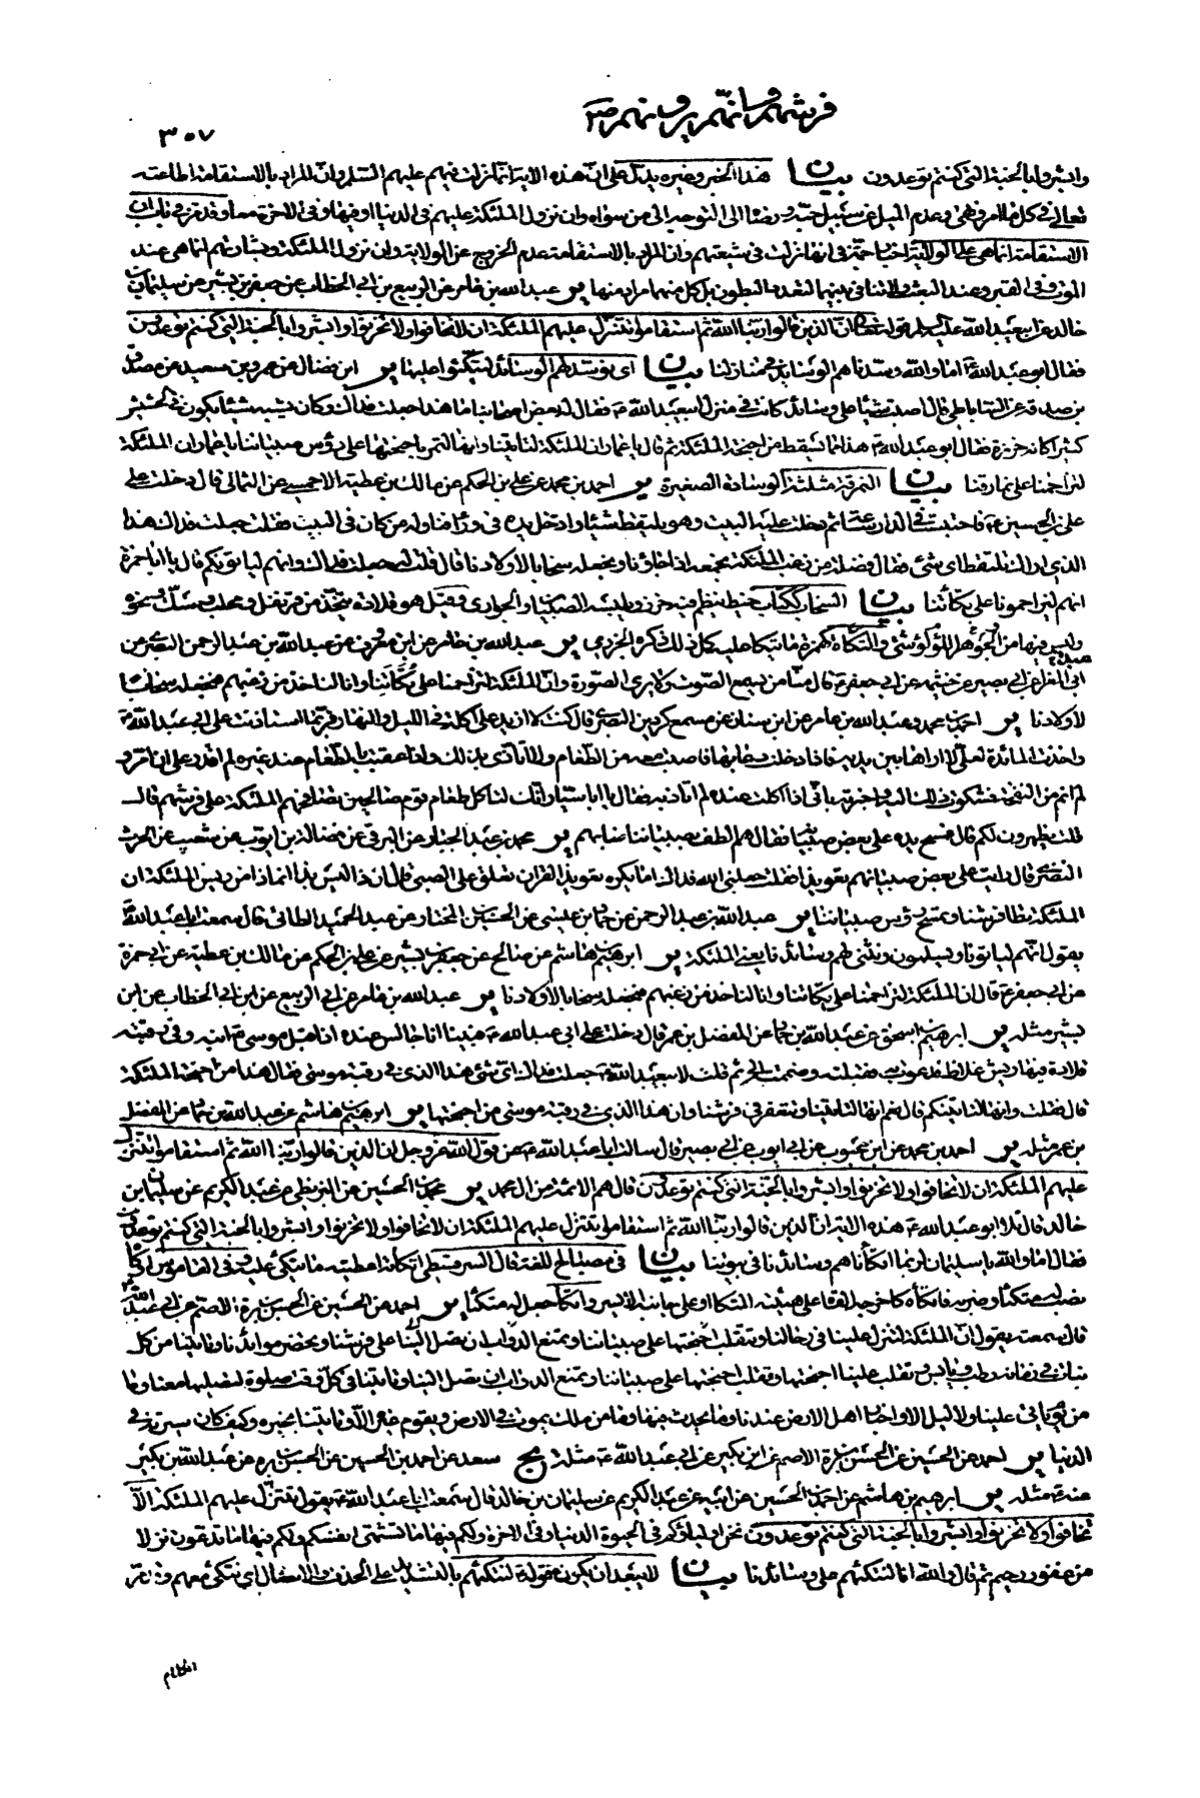 فرشهم وانهم يرونهم ص
٣٠٧
وابشروا بالجنة التي كنتم توعدون بيان هذا الخبر وغيره يدل على ان هذه الاية انما نزلت فيهم عليهم السلام وان المراد بالاستقامة اطاعته
تعالى في كل ما امر ونهى وعدم الميل عن سبيل حبه ورضاه الى التوجه الى من سواه وان نزول الملئكة عليهم في الدنيا او فيها وفي الاخرة معا وقد مر في باب ان
الاستقامة انما هي على الولاية اخبار جمة في انها نزلت في شيعتهم وان المراد بالاستقامة عدم الخروج عن الولاية وان نزول الملئكة وبشارتهم انما هي عند
الموت وفي القبر وعند البعث ولا تنافي بينهما لتعدد البطون بل كل منهما مراد منها ير عبد الله بن عامر عن الربيع بن ابي الخطاب عن جعفر بن بشير عن سليمان بن
خالد عن ابي عبد الله عليه السلم قوله تعالى ان الذين قالوا ربنا الله ثم استقاموا تتنزل عليهم الملئكة ان لا تخافوا ولا تحزنوا وابشروا بالجنة التي كنتم توعدون
فقال ابو عبد الله ع اما والله وسدناهم الوسائد في منازلنا بيان اي نوسد لهم الوسائد ليتكئوا عليها ير ابن فضال عن عمرو بن سعيد عن مصدق
بن صدقة عن الساباطي قال اصبت شيئا على وسائد كانت في منزل ابي عبد الله ع فقال له بعض اصحابنا ما هذا جعلت فداك وكان يشبه شيئا يكون في الحشيش
كثيرا كانه خرزة فقال ابو عبد الله ع هذا مما يسقط من اجنحة الملئكة ثم قال يا عمار ان الملئكة لتاتينا وانها لتمر باجنحتها على رؤس صبياننا يا عمار ان الملئكة
لتزاحمنا على نمارقنا بيان النمرقة مثلثة الوسادة الصغيرة ير احمد بن محمد عن علي بن الحكم عن مالك بن عطية الاحمسي عن الثمالي قال دخلت على
علي بن الحسين ع فاحتبست في الدار ساعة ثم دخلت عليه البيت وهو يلتقط شيئا وادخل يده في وراء الستر فناوله من كان في البيت فقلت جعلت فداك هذا
الذي اراك تلتقط اي شئ فقال فضلة من زغب الملئكة نجمعه اذا جاؤنا ونجعله سخابا لاولادنا قال قلت له جعلت فداك وانهم لياتونكم قال يا ابا حمزة
انهم ليزاحمونا على تكأتنا بيان السخاب ككتاب خيط ينظم فيه خرز ويلبسه الصبيان والجواري وقيل هو قلادة يتخذ من قرنفل ومحلب وسك ونحوه
وليس فيها من الجوهر اللؤلؤ شئ والتكأة كهمزة ما يتكأ عليه كل ذلك ذكره الجزري ير عبد الله بن عامر عن ابن معروف عن عبد الله بن عبد الرحمن البصري عن
ابي المغرا عن ابي بصير عن خثيمة عن ابي جعفر ع قال منا من يسمع الصوت ولا يرى الصورة وان الملئكة لتزاحمنا على تكأتنا وانا لناخذ من زغبهم فنجعله سخابا
لاولادنا ير احمد بن محمد وعبد الله بن عامر عن ابن سنان عن مسمع كردين البصري قال كنت لا ازيد على اكلة في الليل والنهار فربما استاذنت على ابي عبد الله ع
واجد المائدة لعلي لا اراها بين يديه فاذا دخلت دعا بها فاصبت معه من الطعام ولا اتاذى بذلك واذا عقبت بالطعام عند غيره لم اقدر على ان اقر و
لم انم من النفخة فشكوت ذلك اليه واخبرته باني اذا اكلت عنده لم اتاذ به فقال يا ابا سيار انك لتاكل طعام قوم صالحين تصافحهم الملئكة على فرشهم قال
قلت يظهرون لكم قال فمسح يده على بعض صبيانه فقال هم الطف بصبياننا منا بهم ير محمد بن عبد الجبار عن البرقي عن فضالة بن ايوب عن شعيب عن الحرث
النضري قال رايت على بعض صبيانهم تعويذا فقلت جعلني الله فداك اما يكره تعويذ القران يعلق على الصبي قال ان ذا ليس بذا انما ذا من ريش الملئكة ان
الملئكة تطأ فرشنا وتمسح رؤس صبياننا ير عبد الله بن عبد الرحمن عن حماد بن عيسى عن الحسين بن المختار عن عبد الحميد الطائي قال سمعت ابا عبد الله ع
يقول انهم لياتونا ويسلمون ونثني لهم وسائدنا يعني الملئكة ير ابرهيم بن هاشم عن صالح عن جعفر بن بشير عن علي بن الحكم عن مالك بن عطية عن ابي حمزة
عن ابي جعفر ع قال ان الملئكة لتزاحمنا على تكأتنا وانا لناخذ من زغبهم فنجعله سخابا لاولادنا ير عبد الله بن عامر عن ابي الربيع عن ابن ابي الخطاب عن ابن
بشير مثله ير ابرهيم بن اسحق عن عبد الله بن حماد عن المفضل بن عمر قال دخلت على ابي عبد الله ع فبينا انا جالس عنده اذ اقبل موسى ع ابنه وفي رقبته
قلادة فيها ريش غلاظ فدعوت به فقبلته وضممته الي ثم قلت لابي عبد الله ع جعلت فداك اي شئ هذا الذي في رقبة موسى فقال هذا من اجنحة الملئكة
قال فقلت وانها لتاتيكم قال نعم انها لتاتينا وتتعفر في فرشنا وان هذا الذي في رقبة موسى من اجنحتها ير ابرهيم بن هاشم عن عبد الله بن حماد عن المفضل
بن عمر مثله ير احمد بن محمد عن ابن محبوب عن ابي ايوب عن ابي بصير قال سالت ابا عبد الله ع عن قول الله عز وجل ان الذين قالوا ربنا الله ثم استقاموا تتنزل
عليهم الملئكة ان لا تخافوا ولا تحزنوا وابشروا بالجنة التي كنتم توعدون قال هم الائمة من ال محمد ير محمد بن الحسين عن البزنطي عن عبد الكريم عن سليمان بن
خالد قال تلا ابو عبد الله ع هذه الاية ان الذين قالوا ربنا الله ثم استقاموا تتنزل عليهم الملئكة ان لا تخافوا ولا تحزنوا وابشروا بالجنة التي كنتم توعدون
فقال اما والله يا سليمان لربما اتكأناهم وسائدنا في بيوتنا بيان في مصباح اللغة قال السرقسطي اتكأته اعطيته ما يتكئ عليه وفي القاموس اوكأه
نصب له متكأ وضربه فاتكأه كاخرجه القاه على هيئة المتكئ او على جانبه الايسر واتكأ جعل له متكئا ير احمد بن الحسين عن الحسن بن برة الاصم عن ابي عبد الله ع
قال سمعته يقول ان الملئكة لتنزل علينا في رحالنا وتتقلب اجنحتها على صبياننا وتمنع الدواب ان تصل الينا على فرشنا وتحضر موائدنا وتاتينا من كل
نبات في زمانه رطب ويابس وتقلب علينا اجنحتها وتقلب اجنحتها على صبياننا وتمنع الدواب ان تصل الينا وتاتينا في كل وقت صلوة لتصليها معنا وما
من يوم ياتي علينا ولا ليل الا واخبار اهل الارض عندنا وما يحدث فيها وما من ملك يموت في الارض ويقوم غيره الا وتاتينا بخبره وكيف كان سيرته في
الدنيا ير احمد بن الحسين عن الحسن بن برة الاصم عن ابن بكير عن ابي عبد الله ع مثله يج سعد عن احمد بن الحسين عن الحسن بن بره عن عبد الله بن بكير
عنه ع مثله ير ابرهيم بن هاشم عن احمد بن الحسين عن ابيه عن عبد الكريم عن سليمان بن خالد قال سمعت ابا عبد الله ع يقول تتنزل عليهم الملئكة الا
تخافوا ولا تحزنوا وابشروا بالجنة التي كنتم توعدون نحن اولياؤكم في الحيوة الدنيا وفي الاخرة ولكم فيها ما تشتهي انفسكم ولكم فيها ما تدعون نزلا
من غفور رحيم ثم قال والله انا لنتكئهم على وسائدنا بيان لا يبعد ان يكون قوله لنتكئهم بالتشديد على الحذف والايصال اي نتكئ معهم وقد مر